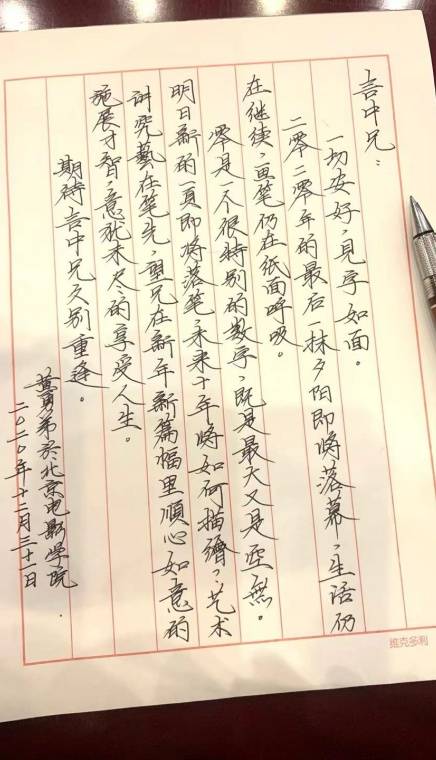 言中兄：
一切安好，见字如面。
二零二零年的最后一抹夕阳即将落幕，生活仍
在继续，画笔仍在纸面呼吸。
零是一个很特别的数字，既是最大又是空無。
明日新的一頁即将落笔，未来十年将如何描繪？艺术
讲究藝在笔先，望兄在新年新篇幅里順心如意的
施展才智，意犹未尽的享受人生。
期待言中兄久别重逢。
黄勇弟於北京电影学院
二〇二〇年十二月三十一日
维克多利